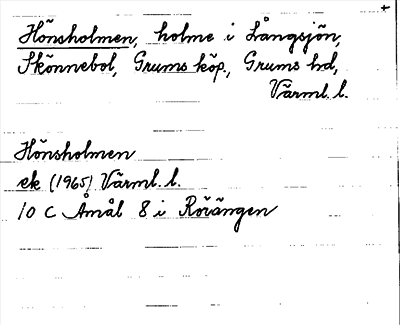 Hönsholmen, holme i Långsjön,
Skönnebol, Grums köp., Grums hd,
Värml. l.
Hönsholmen
ek (1965) Värml. l.
10 C Åmål 8 i Rörängen